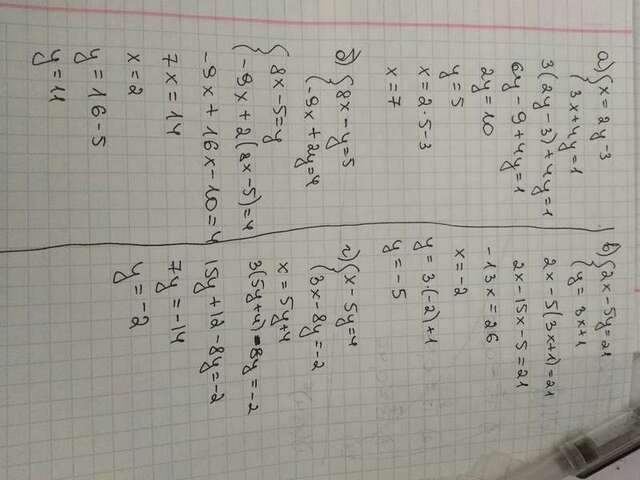 а) { x = 2y - 3
{ 3x + 4y = 1
3(2y - 3) + 4y = 1
6y - 9 + 4y = 1
2y = 10
y = 5
x = 2·5 - 3
x = 7
б) { 8x - y = 5
{ -9x + 2y = 4
{ 8x - 5 = y
{ -9x + 2(8x - 5) = 4
-9x + 16x - 10 = 4
7x = 14
x = 2
y = 16 - 5
y = 11
в) { 2x - 5y = 21
{ y = 3x + 1
2x - 5(3x + 1) = 21
2x - 15x - 5 = 21
-13x = 26
x = -2
y = 3·(-2) + 1
y = -5
г) { x - 5y = 4
{ 3x - 8y = -2
x = 5y + 4
3(5y + 4) - 8y = -2
15y + 12 - 8y = -2
7y = -14
y = -2